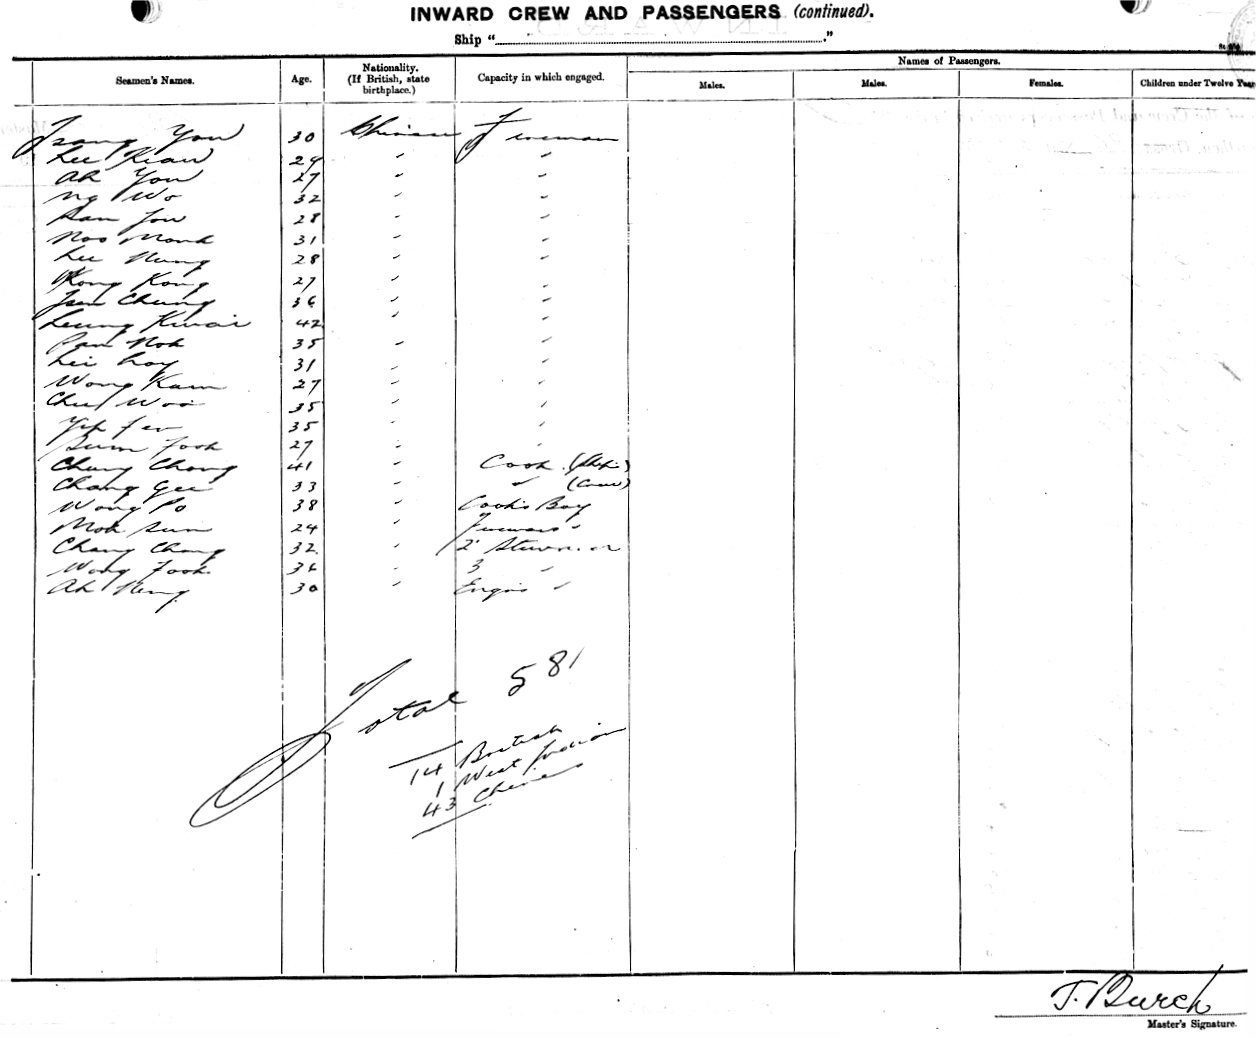 INWARD CREW AND PASSENGERS (continued).
Ship " "
Seamen's Names. Age. Nationality. (If British, state birthplace.) Capacity in which engaged. Names of Passengers.
Males. Males. Females. Children under Twelve Years
Tsang You 30 Chinese Fireman
Lee Kian 29 " "
Ah You 27 " "
Ng Wo 32 " "
Sam Jou 28 " "
31 " "
Lee Nung 28 " "
Wong Kong 27 " "
Chung 36 " "
Leung Kwai 42 " "
Pan Nok 35 " "
Lei Loy 31 " "
Wong Kam 27 " "
Woo 35 " "
Yip 35 " "
Sum Fook 27 " "
Chung Chong 41 " Cook (Ship)
Chang Gee 33 " " (Crew)
Wong Po 38 " Cook's Boy
Mok Sun 24 " Firemans "
Chang Chong 32 " 2
Wong Fook 36 " 3 "
Ah Neng 30 " Engrs "
Total 58
14 British
1 West Indian
43 Chinese
T. Burch
Master's Signature.